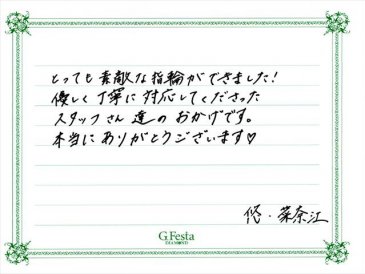 とっても素敵な指輪ができました!
優しく丁寧に対応してくださった
スタッフさん達のおかげです。
本当にありがとうございます♡
悠・菜奈江
G.Festa
DIAMOND